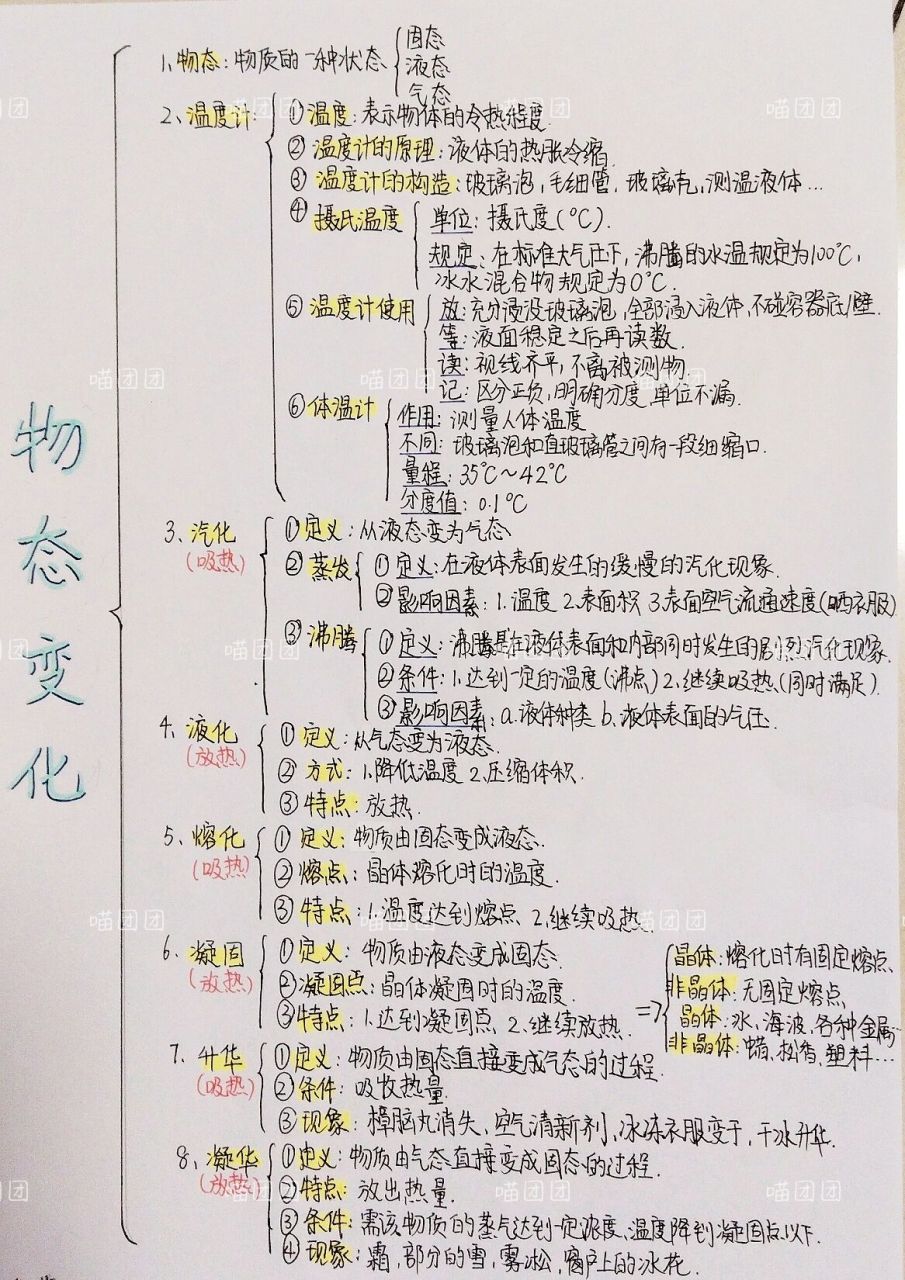 物态变化
1、物态：物质的一种状态
固态
液态
气态
2、温度计：
①温度：表示物体的冷热程度.
②温度计的原理：液体的热胀冷缩.
③温度计的构造：玻璃泡，毛细管，玻璃壳，测温液体…
④摄氏温度
单位：摄氏度(℃).
规定：在标准大气压下，沸腾的水温规定为100℃，
冰水混合物规定为0℃.
⑤温度计使用
放：充分浸没玻璃泡，全部浸入液体，不碰容器底/壁.
等：液面稳定之后再读数.
读：视线齐平，不离被测物.
记：区分正负，明确分度，单位不漏.
⑥体温计
作用：测量人体温度
不同：玻璃泡和直玻璃管之间有一段细缩口.
量程：35℃～42℃
分度值：0.1℃
3、汽化
(吸热)
①定义：从液态变为气态
②蒸发
①定义：在液体表面发生的缓慢的汽化现象.
②影响因素：1.温度 2.表面积 3.表面空气流通速度(晒衣服)
③沸腾
①定义：沸腾是在液体表面和内部同时发生的剧烈汽化现象.
②条件：1.达到一定的温度(沸点) 2.继续吸热(同时满足).
③影响因素：a.液体种类 b.液体表面的气压.
4、液化
(放热)
①定义：从气态变为液态.
②方式：1.降低温度 2.压缩体积.
③特点：放热.
5、熔化
(吸热)
①定义：物质由固态变成液态.
②熔点：晶体熔化时的温度.
③特点：1.温度达到熔点 2.继续吸热.
6、凝固
(放热)
①定义：物质由液态变成固态.
②凝固点：晶体凝固时的温度.
③特点：1.达到凝固点 2.继续放热.
=>
晶体：熔化时有固定熔点.
非晶体：无固定熔点.
晶体：冰、海波、各种金属…
非晶体：蜡、松香、塑料…
7、升华
(吸热)
①定义：物质由固态直接变成气态的过程.
②条件：吸收热量.
③现象：樟脑丸消失、空气清新剂，冰冻衣服变干，干冰升华.
8、凝华
(放热)
①定义：物质由气态直接变成固态的过程.
②特点：放出热量.
③条件：需该物质的蒸气达到一定浓度、温度降到凝固点以下.
④现象：霜，部分的雪，雾凇，窗户上的冰花.
喵团团